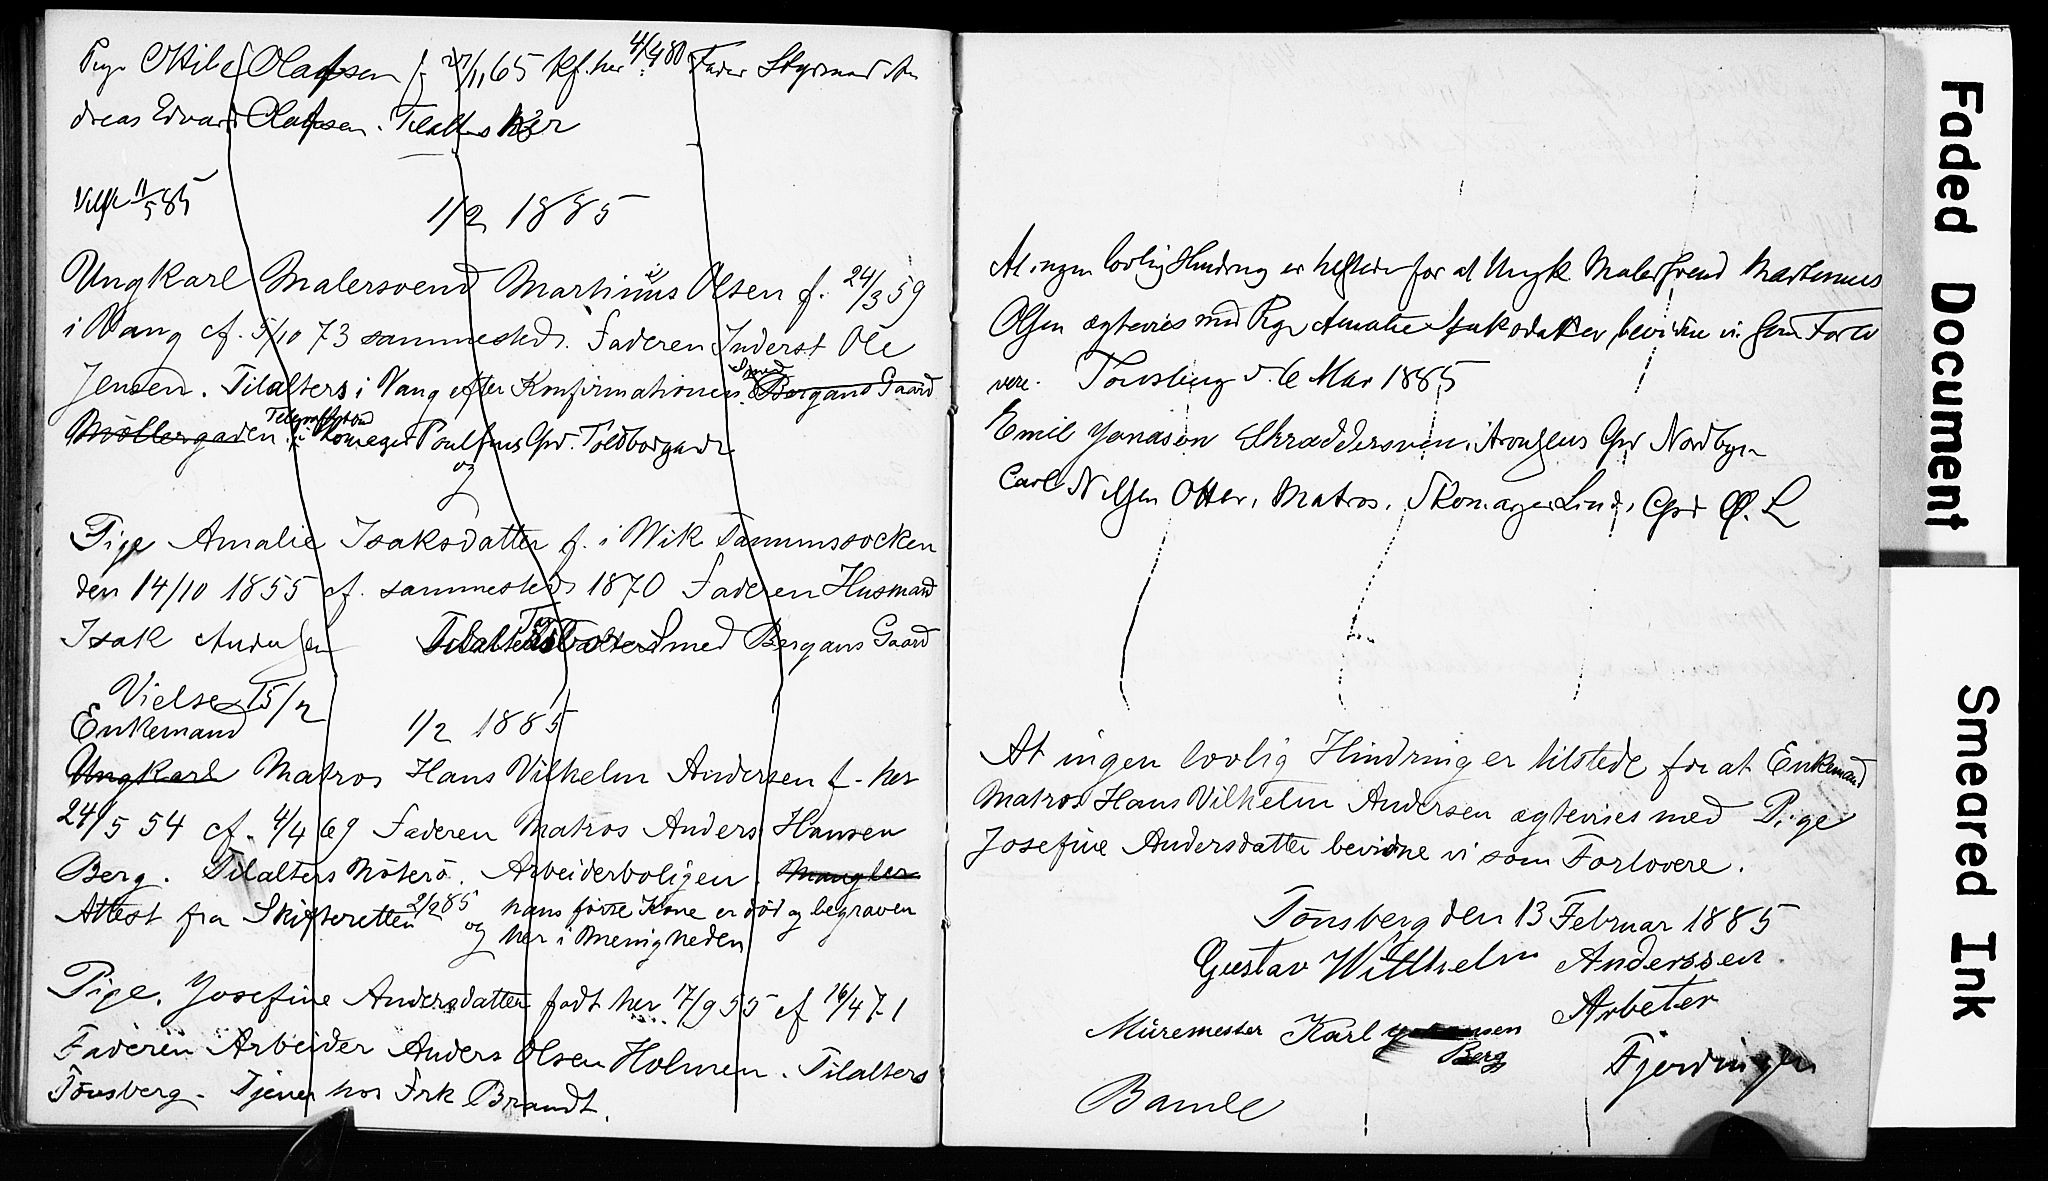 Pige Ottilie Olafsen f 27/11 65 kf. her 4/4 80 Fader Styrmand An
dreas Edvard Olafsen. Tilalters her
Viede 11/5 85
1/2 1885
Ungkarl Malersvend Martinius Olsen f. 24/3 59
i Vang cf. 5/10 73 sammesteds. Faderen Inderst Ole
Jensen. Tilalters i Vang efter Konfirmationen. Smed Bergans Gaard
Möllergaden Skomager Poulsens Grd. Toldbodgade
og
Pige Amalie Isaksdatter f. i Wik Tanumssocken
den 14/10 1855 cf. sammesteds 1870 Faderen Husmand
Isak Andersen Tilalters Smed Bergans Gaard
Vielse 15/2
Enkemand 1/2 1885
Ungkarl Matros Hans Vilhelm Andersen f. her
24/5 54 cf. 4/4 69 Faderen Matros Anders Hansen
Berg. Tilalters Nöterö. Arbeiderboligen. Mangler
Attest fra Skifteretten 2/2 85 og hans første Kone er død og begraven
her i Menigheden
Pige. Josefine Andersdatter født her 17/9 55 cf 16/4 71
Faderen Arbeider Anders Olsen Holmen. Tilalters
Tönsberg. Tjener hos Frk Brandt.
At ingen lovlig Hindring er tilstede for at Ungk Malersvend Martinius
Olsen ægtevies med Pige Amalie Isaksdatter bevidne vi som Forlo
vere. Tönsberg d. 6 Mar 1885
Emil Jonasen Skræddersvend Grd Nordbyen
Carl Nilsen Otter, Matros, Skomager Lind, Grd
At ingen lovlig Hindring er tilstede for at Enkemand
Matros Hans Vilhelm Andersen ægtevies med Pige
Josefine Andersdatter bevidne vi som Forlovere.
Tönsberg den 13 Februar 1885
Gustav Willhelm Anderssen.
Arbeter
Müremester Karl Johansen
Berg
Fjerdingen
Bamle
Faded Document
Smeared Ink